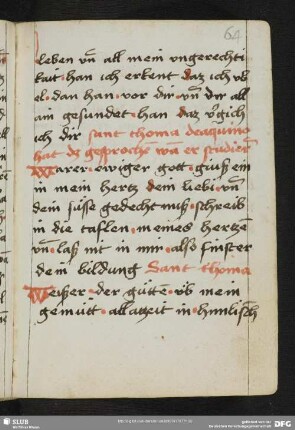 64
leben vn̄ all mein ungerechti
kait · han ich erkent daz ich vb
el · dan han · vor dir · vn̄ dir all
ain gesundet · han daz v̓gich
ich dir sant thoma deaquino
hat dz gesproche͞ wan er studiert
Warer · ewiger gott · giuß ein
in mein hertz dem liebi · vn̄
dein süsse gedechtnuß · schreib
in die taflen · meines hertzen
vn̄ · laß nit in mir · alß finster
dein bildung Sant thoma
Weißer · der gütten · vb mein
gemütt · allatzeit in · himlisch
SLUB
DFG